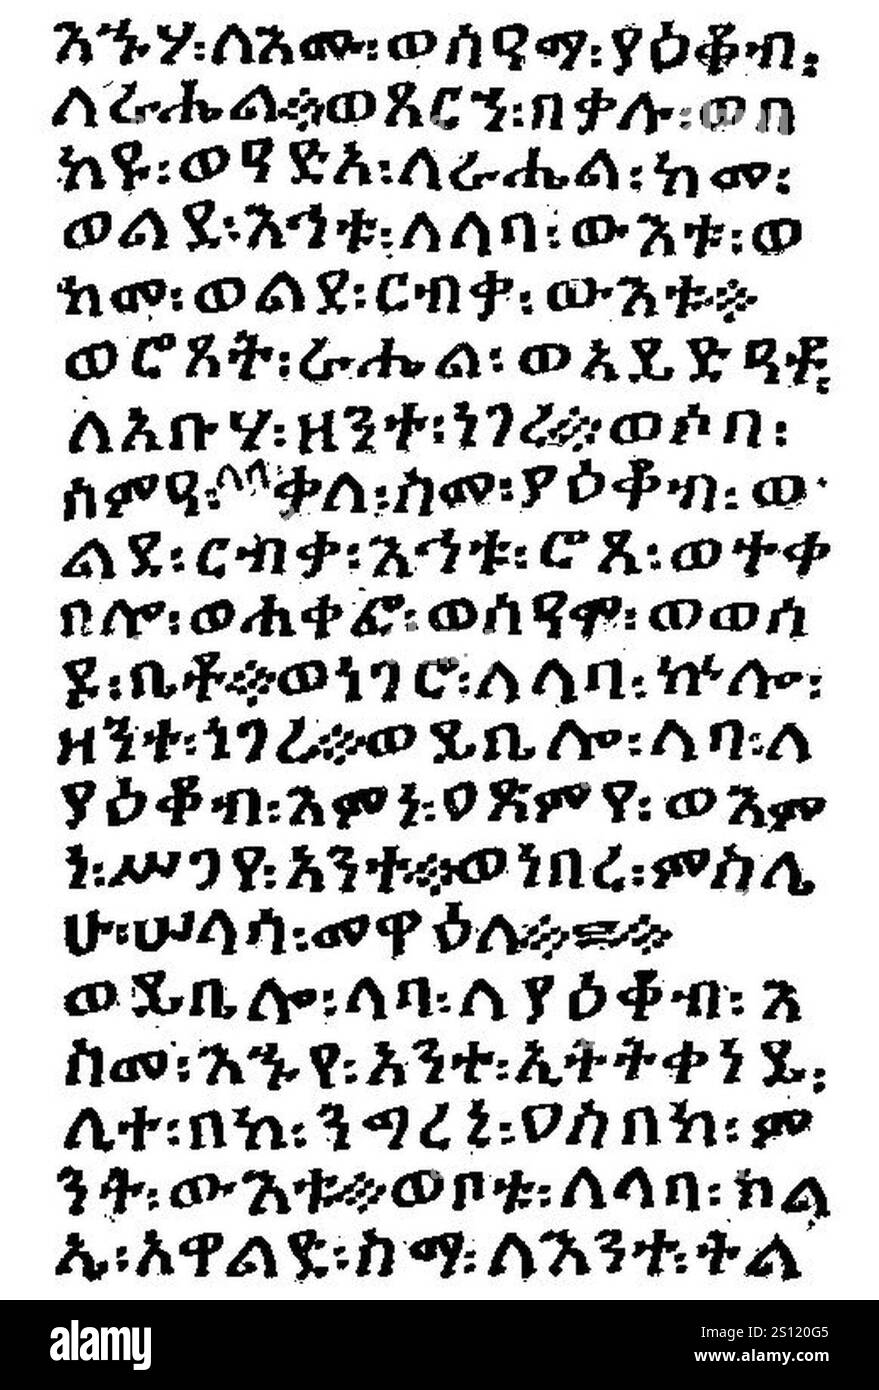 እኁሃ፡ለእሙ፡ወሰዓማ፡ያዕቆብ፡
ለራሔል፨ወጸርኀ፡በቃሉ፡ወበ
ከየ፡ወዓይድአ፡ለራሔል፡ከመ፡
ወልደ፡እኅቱ፡ለላባ፡ውእቱ፡ወ
ከመ፡ወልደ፡ርብቃ፡ውእቱ፨
ወሮጸት፡ራሔል፡ወአይድዓቶ፡
ለአቡሃ፡ዘንተ፡ነገረ፨ወሶበ፡
ሰምዓ፡ላባ፡ቃለ፡ስመ፡ያዕቆብ፡ወ
ልደ፡ርብቃ፡እኅቱ፡ሮጸ፡ወተቀ
በሎ፡ወሐቀፎ፡ወሰዓሞ፡ወወሰ
ዶ፡ቤቶ፨ወነገሮ፡ለላባ፡ኵሎ፡
ዘንተ፡ነገረ፨ወይቤሎ፡ላባ፡ለ
ያዕቆብ፡እምነ፡ዐጽምየ፡ወእም
ነ፡ሥጋየ፡አንተ፨ወነበረ፡ምስሌ
ሁ፡ሠላሳ፡መዋዕለ፨=፨
ወይቤሎ፡ላባ፡ለያዕቆብ፡እ
ስመ፡እኁየ፡አንተ፡ኢትትቀነይ፡
ሊተ፡በከ፡ንግረኒ፡ዐስበከ፡ም
ንት፡ውእቱ፨ወቦቱ፡ለላባ፡ክል
ኤ፡አዋልድ፡ስማ፡ለእንተ፡ትል
alamy
Image ID: 2S120G5
www.alamy.com